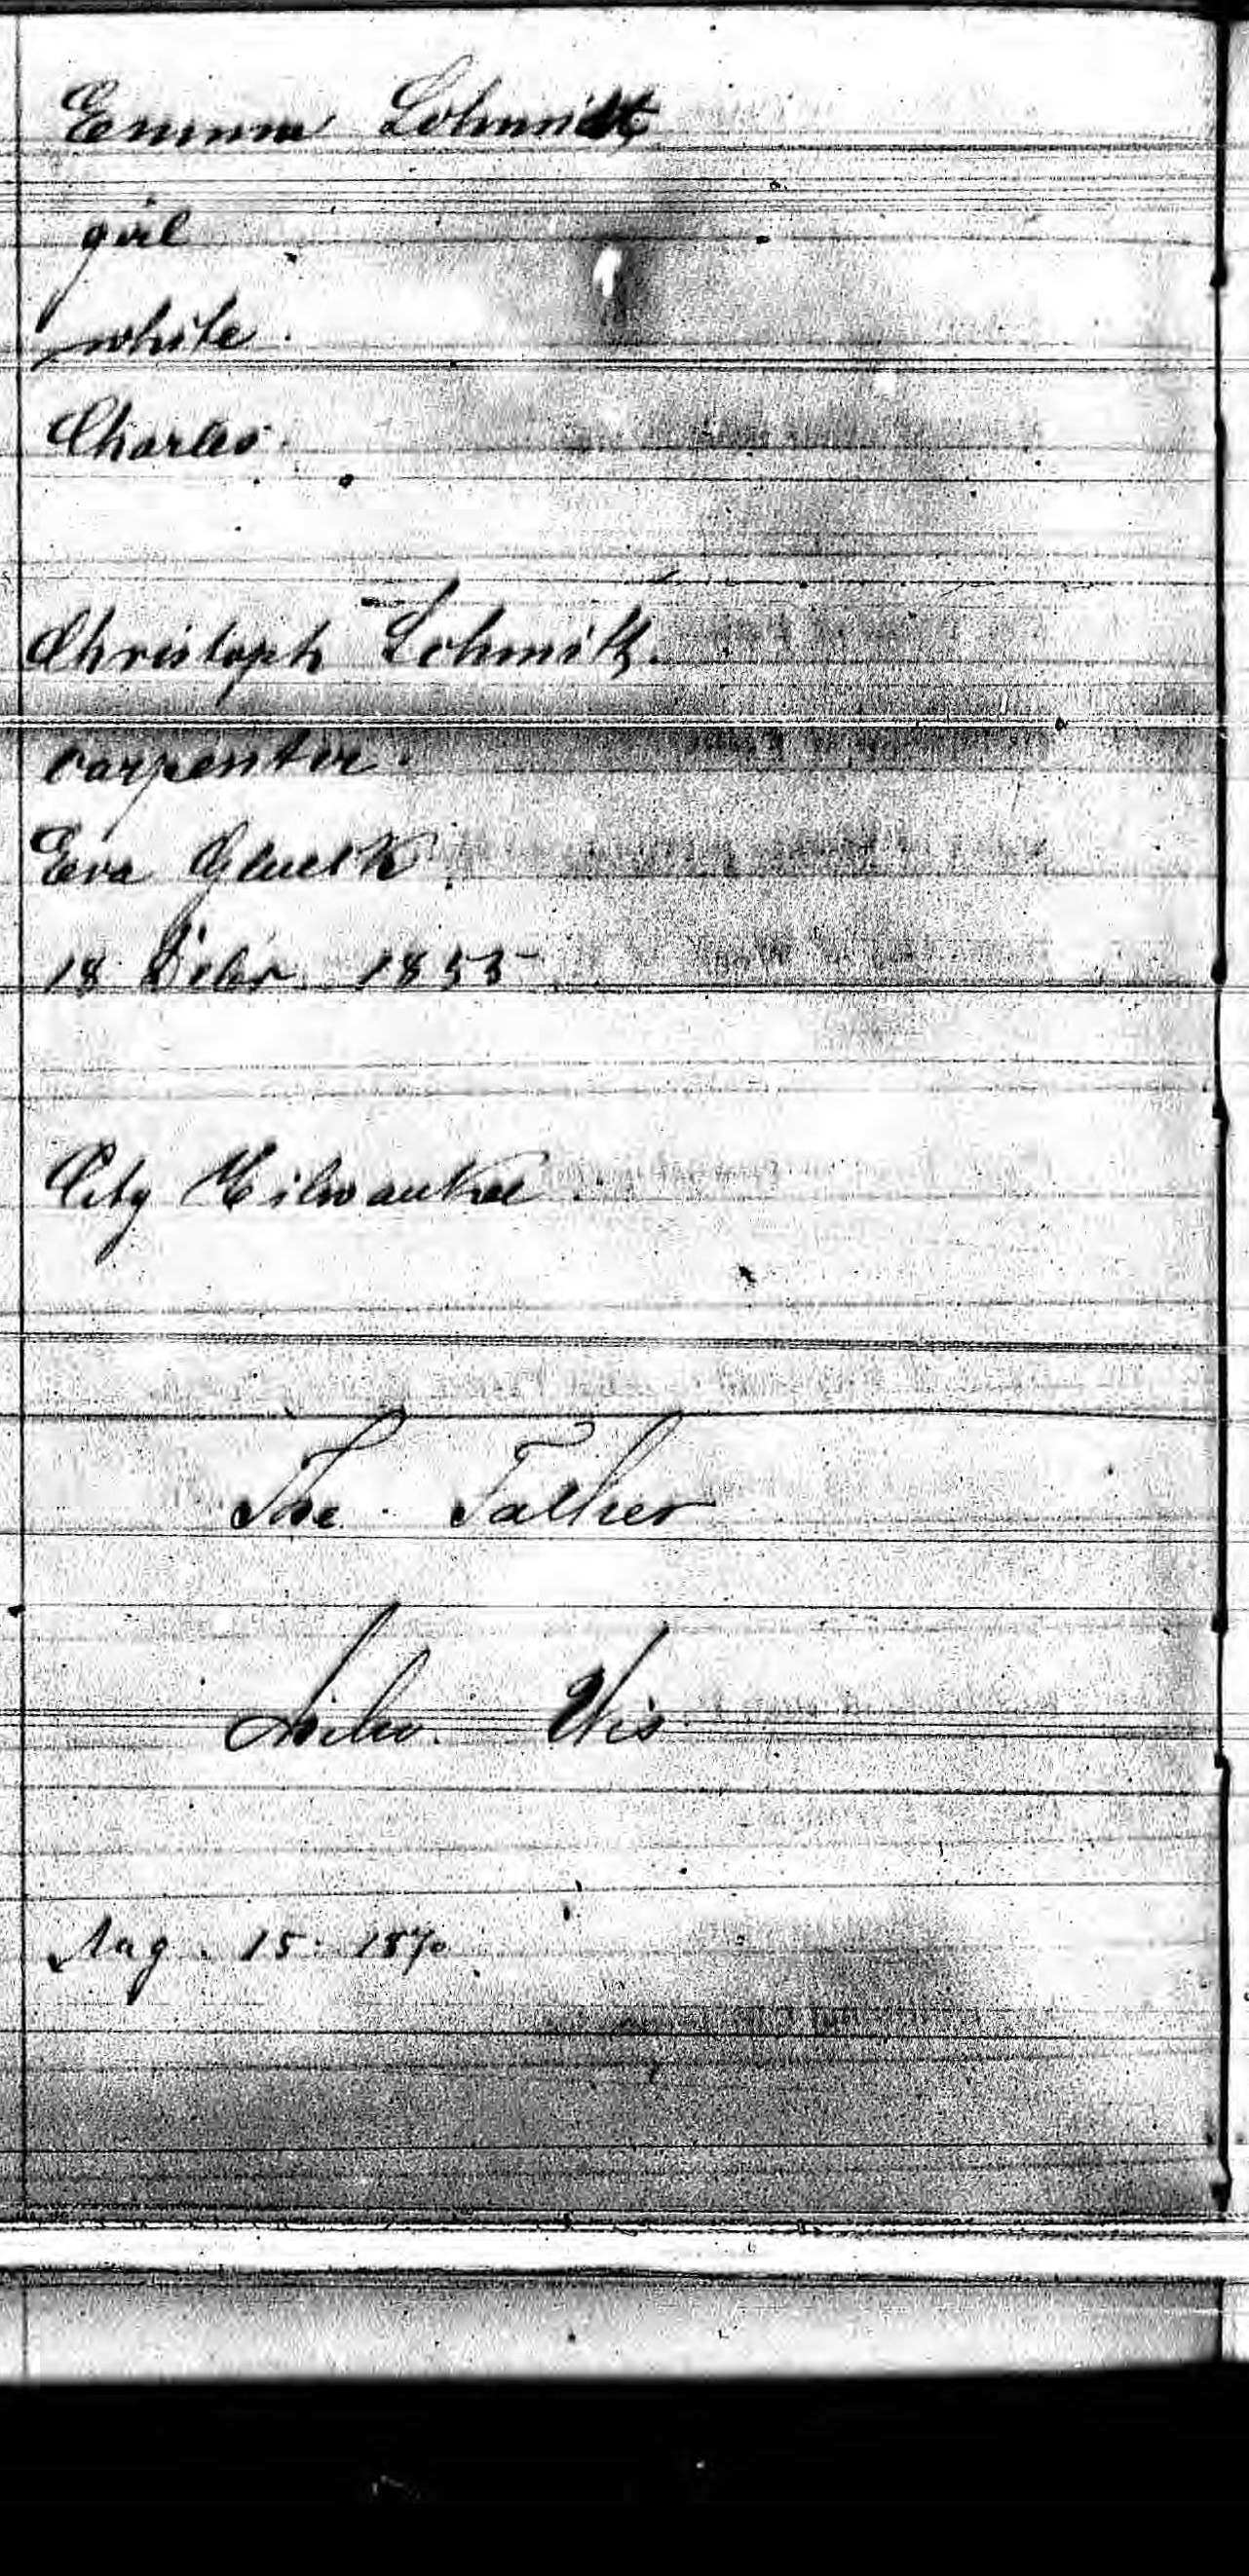 Emma Schmidt
girl
white.
Charles.
Christoph Schmitt.
carpenter.
Eva Glueck
18 Debr 1855
City Milwaukee
The Father
Milw. Wis
Aug. 15. 1870